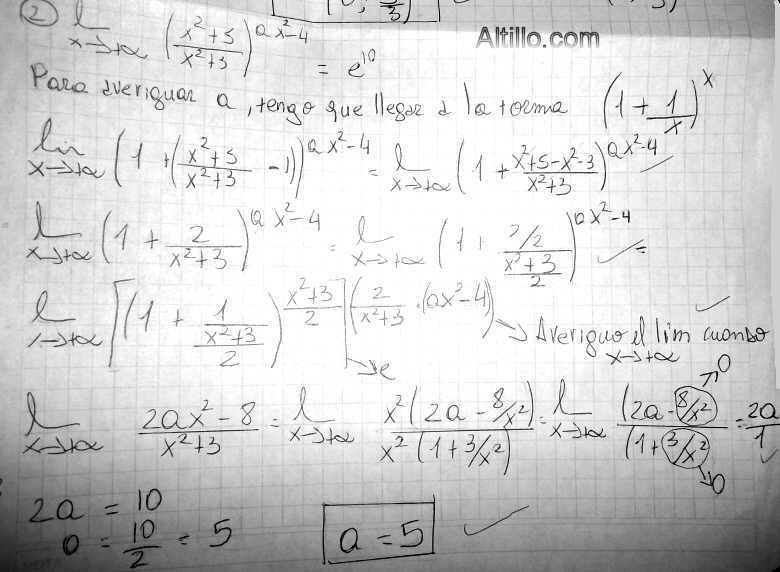 ② l x→+∞ (x²+5/x²+3)^(ax²-4) = e^10
Altillo.com
Para averiguar a, tengo que llegar a la forma (1 + 1/x)^x
lim x→+∞ (1 + (x²+5/x²+3 - 1))^(ax²-4) = l x→+∞ (1 + x²+5-x²-3/x²+3)^(ax²-4) ✓
l x→+∞ (1 + 2/x²+3)^(ax²-4) = l x→+∞ (1 + 2/2/(x²+3/2))^(ax²-4) ✓ =
l x→+∞ [(1 + 1/(x²+3/2))^(x²+3/2)]^(2/x²+3 · (ax²-4)) → Averiguo el lim cuando x→+∞ ✓
→ e
l x→+∞ 2ax²-8/x²+3 = l x→+∞ x²(2a - 8/x²)/x²(1+3/x²) = l x→+∞ (2a - 8/x²)/(1+3/x²) = 2a/1 ✓
→0
→0
2a = 10
a = 10/2 = 5
a = 5 ✓